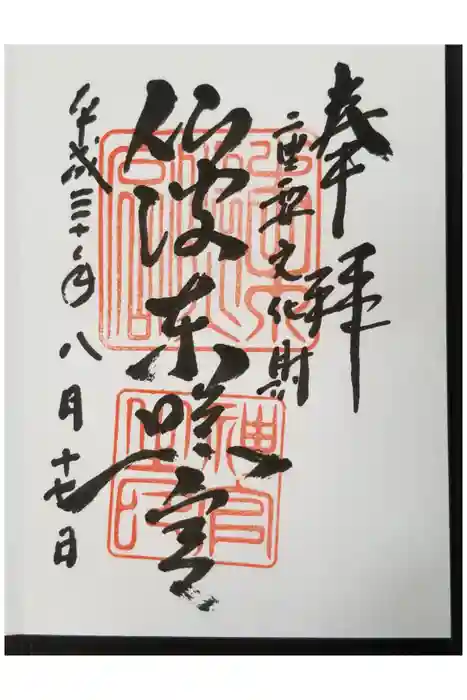 奉拝
重要文化財
仙波東照宮
平成三十年八月十七日